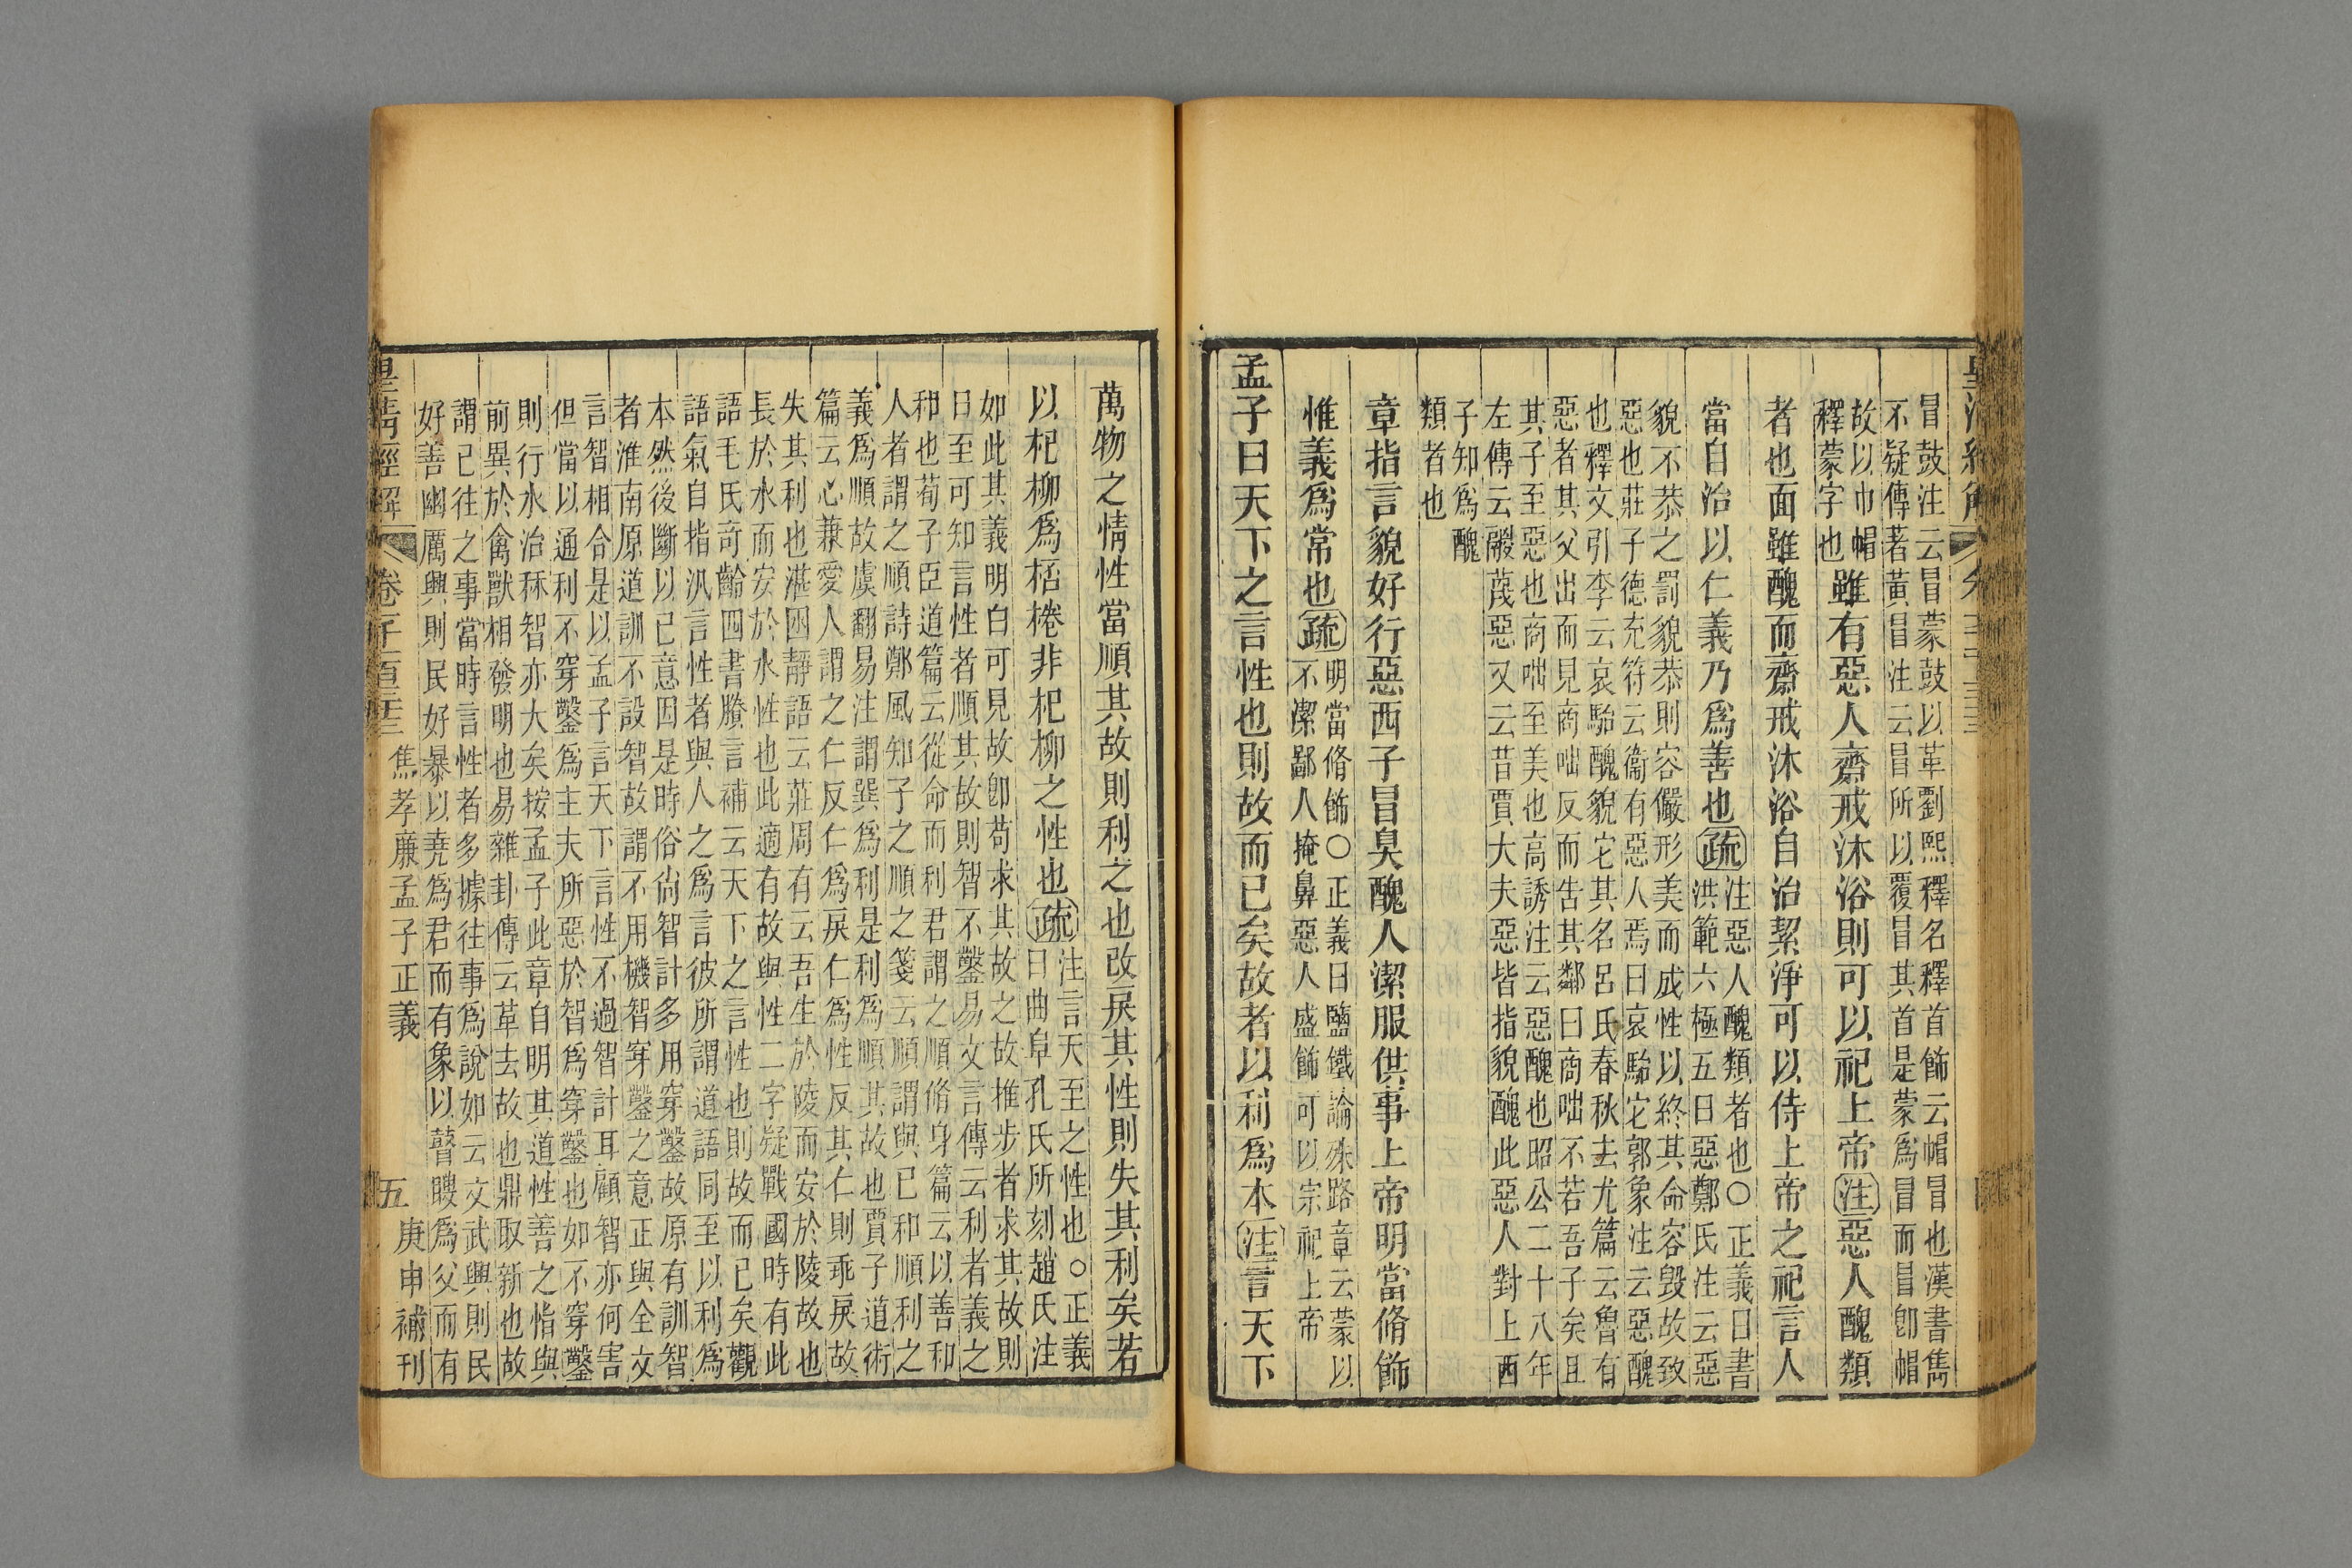 冒鼓注云冒蒙鼓以革劉熙釋名釋首飾云帽冒也漢書雋
不疑傳著黃冒注云冒所以覆冒其首是蒙爲冒而冒卽帽
故以巾帽
釋蒙字也
雖有惡人齋戒沐浴則可以祀上帝注惡人醜類
者也面雖醜而齋戒沐浴自治絜淨可以侍上帝之祀言人
當自治以仁義乃爲善也疏
注惡人醜類者也○正義曰書
洪範六極五曰惡鄭氏注云惡
貌不恭之罰貌恭則容儼形美而成性以終其命容毁故致
惡也莊子德充符云衞有惡人焉曰哀駘它郭象注云惡醜
也釋文引李云哀駘醜貌它其名呂氏春秋去尤篇云魯有
惡者其父出而見商咄反而告其鄰曰商咄不若吾子矣且
其子至惡也商咄至美也高誘注云惡醜也昭公二十八年
左傳云鬷蔑惡又云昔賈大夫惡皆指貌醜此惡人對上西
子知爲醜
類者也
章指言貌好行惡西子冒臭醜人潔服供事上帝明當脩飾
惟義爲常也疏
明當脩飾○正義曰鹽鐵論殊路章云蒙以
不潔鄙人掩鼻惡人盛飾可以宗祀上帝
孟子曰天下之言性也則故而已矣故者以利爲本注言天下
萬物之情性當順其故則利之也改戾其性則失其利矣若
以杞柳爲桮棬非杞柳之性也疏
注言天至之性也○正義
曰曲阜孔氏所刻趙氏注
如此其義明白可見故卽苟求其故之故推步者求其故則
日至可知言性者順其故則智不鑿易文言傳云利者義之
和也荀子臣道篇云從命而利君謂之順脩身篇云以善和
人者謂之順詩鄭風知子之順之箋云順謂與已和順利之
義爲順故虞翻易注謂巽爲利是利爲順其故也賈子道術
篇云心兼愛人謂之仁反仁爲戾仁爲性反其仁則乖戾故
失其利也湛困靜語云莊周有云吾生於陵而安於陵故也
長於水而安於水性也此適有故與性二字疑戰國時有此
語毛氏奇齡四書賸言補云天下之言性也則故而已矣觀
語氣自指汎言性者與人之爲言彼所謂道語同至以利爲
本然後斷以已意因是時俗尚智計多用穿鑿故原有訓智
者淮南原道訓不設智故謂不用機智穿鑿之意正與全文
言智相合是以孟子言天下言性不過智計耳顧智亦何害
但當以通利不穿鑿爲主夫所惡於智爲穿鑿也如不穿鑿
則行水治秝智亦大矣按孟子此章自明其道性善之恉與
前異於禽獸相發明也易雜卦傳云革去故也鼎取新也故
謂已往之事當時言性者多據往事爲說如云文武興則民
好善幽厲興則民好暴以堯爲君而有象以瞽瞍爲父而有
皇清經解
焦孝廉孟子正義
五
庚申補刊